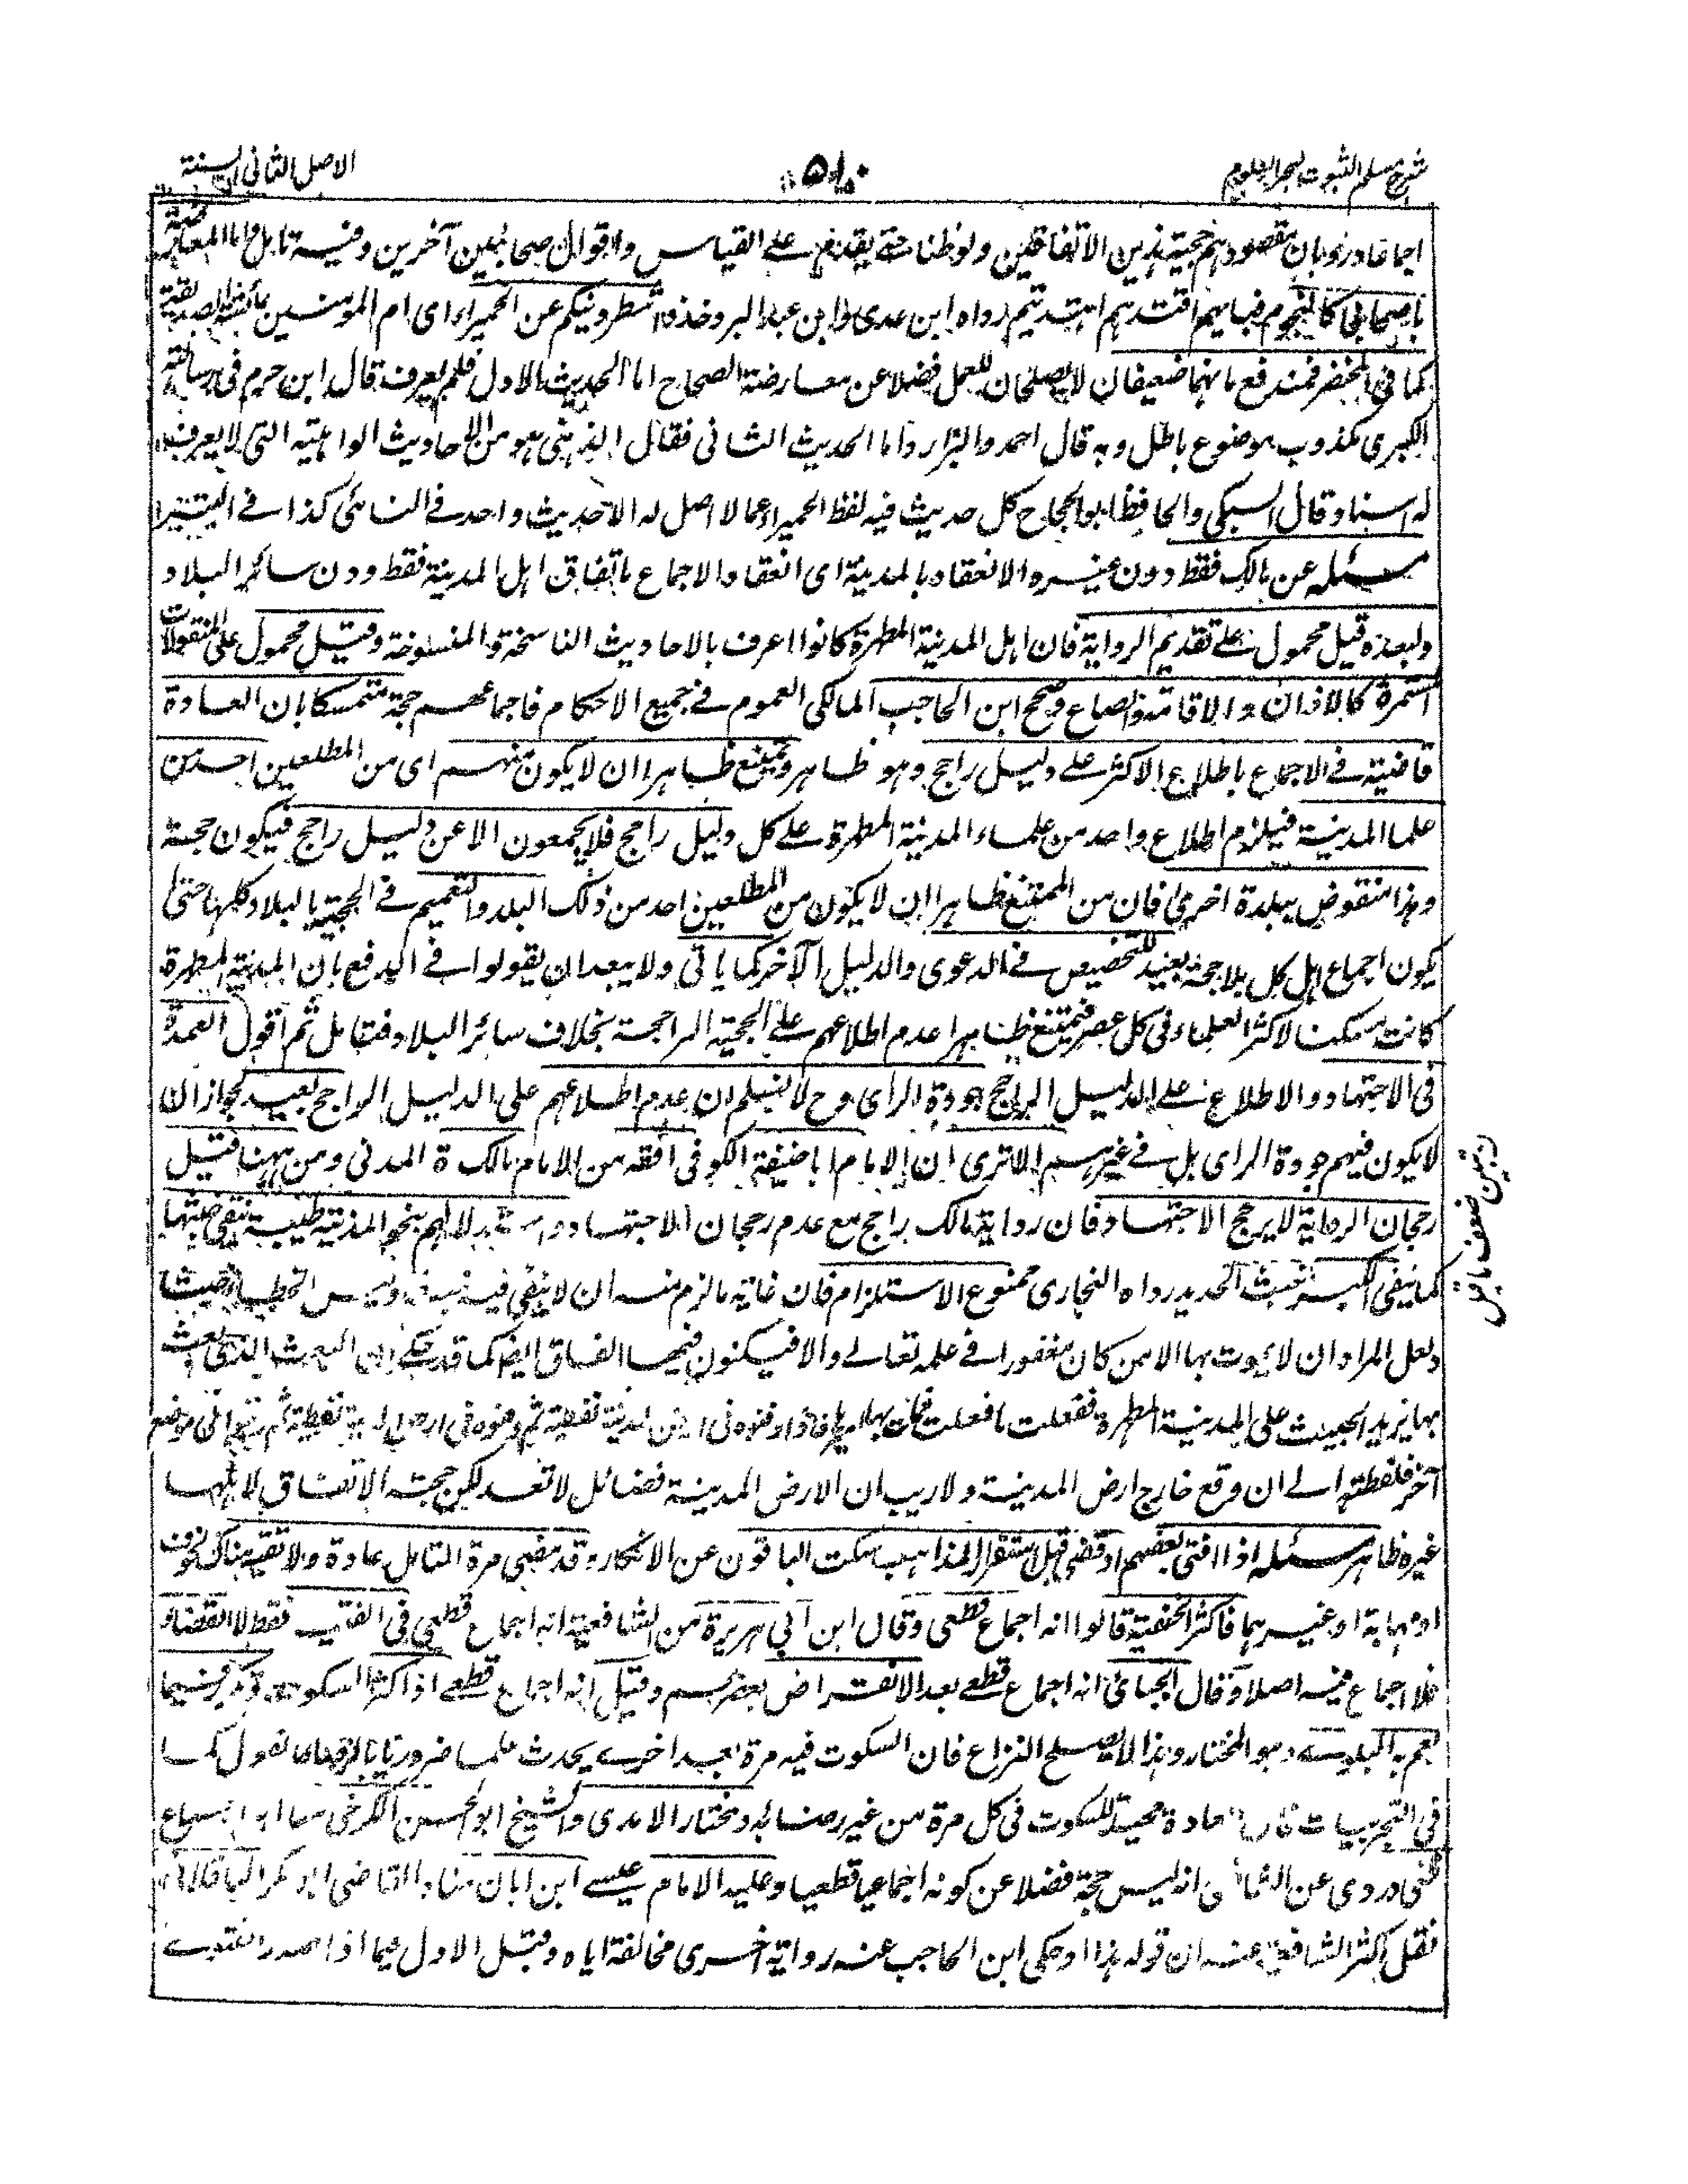 شرح مسلم الثبوت لبحر العلوم
٥١٠
الاصل الثانی السنة
اجماعا وردوه بان مقصودهم حجية هذين الاتفاقين ولو ظنا حتى يقدم على القياس واقوال صحابيين آخرين وفيه تامل واما المعارضة
باصحابی كالنجوم فبايهم اقتديتم اهتديتم رواه ابن عدی وابن عبد البر وخذوا شطر دينكم عن الحميراء ای ام المؤمنين عائشة الصديقة
كما فی المختصر فمندفع بانهما ضعيفان لا يصلحان للعمل فضلا عن معارضة الصحاح اما الحديث الاول فلم يعرف قال ابن حزم فی رسالته
الكبرى مكذوب موضوع باطل وبه قال احمد والبزار واما الحديث الثانی فقال الذهبی هو من الاحاديث الواهية التی لا يعرف
له اسناد وقال السبكی والحافظ ابو الحجاج كل حديث فيه لفظ الحميراء لا اصل له الا حديث واحد فی النسائی كذا فی التيسير
مسئله عن مالك فقط دون غيره الانعقاد بالمدينة ای انعقاد الاجماع باتفاق اهل المدينة فقط دون سائر البلاد
ولبعده قيل محمول على تقديم الرواية فان اهل المدينة المطهرة كانوا اعرف بالاحاديث الناسخة والمنسوخة وقيل محمول على المنقولات
المستمرة كالاذان والاقامة والصاع وصحح ابن الحاجب المالكی العموم فی جميع الاحكام فاجماعهم حجة متمسكا بان العادة
قاضية فی الاجماع باطلاع الاكثر على دليل راجح وهو ظاهر ويمتنع ظاهرا ان لا يكون منهم ای من المطلعين احد من
علماء المدينة فيلزم اطلاع واحد من علماء المدينة المطهرة على كل دليل راجح فلا يجمعون الا عن دليل راجح فيكون حجة
وهذا منقوض ببلدة اخرى فان من الممتنع ظاهرا ان لا يكون من المطلعين احد من ذلك البلد والتعميم فی الحجية بالبلاد كلها حتى
يكون اجماع اهل كل بلد حجة بعيد للتخصيص فی الدعوى والدليل الآخر كما ياتی ولا يبعد ان يقولوا فی الدفع بان المدينة المطهرة
كانت مسكنا لاكثر العلماء فی كل عصر فيمتنع ظاهرا عدم اطلاعهم على الحجية الراجحة بخلاف سائر البلاد فتامل ثم اقول العمدة
فی الاجتهاد والاطلاع على الدليل الراجح جودة الرای وح لا نسلم ان عدم اطلاعهم على الدليل الراجح بعيد لجواز ان
لا يكون فيهم جودة الرای بل فی غيرهم الا ترى ان الامام ابا حنيفة الكوفی افقه من الامام مالك المدنی ومن ههنا قيل
رجحان الرواية لا يرجح الاجتهاد فان رواية مالك راجح مع عدم رجحان الاجتهاد واستدلالهم بنحو المدينة طيبة تنفی خبثها
كما ينفی الكير خبث الحديد رواه البخاری ممنوع الاستلزام فان غاية ما لزم منه ان لا يبقى فيه خبث وليس الخطاء خبثا
ولعل المراد ان لا يموت بها الا من كان مغفورا فی علمه تعالے والا فيكنون فيها الفساق ايضا كما قد حكے البعث الذی بعث
بها يزيد الخبيث على المدينة المطهرة ففعلت ما فعلت
آخر فلفظته الے ان وقع خارج ارض المدينة ولا ريب ان لارض المدينة فضائل لا تعد لكن حجية الاتفاق لاهلها
غير ظاهر مسئله اذا افتى بعضهم او قضى قبل استقرار المذاهب وسكت الباقون عن الانكار وقد مضى مدة التامل عادة ولا تقية هناك لخوف
او مهابة او غيرهما فاكثر الحنفية قالوا انه اجماع قطعی وقال ابن ابی هريرة من الشافعية انه اجماع قطعی فی الفتيا فقط لا القضاء
فلا اجماع فيه اصلا وقال الجبائی انه اجماع قطعے بعد الانقراض بعضهم وقيل انه اجماع قطعے اذا كثر السكوت وتكرر فيما
يعم به البلوے وهو المختار وهذا لا يصلح النزاع فان السكوت فيه مرة بعد اخرے يحدث علما ضروريا بالرضاء بالقول كما
فی التجربيات العادة محيلة للسكوت فی كل مرة من غير رضا به ومختار الآمدی والشيخ ابو الحسن الكرخی منا انه اجماع
ظنی وروی عن الشافعی انه ليس حجة فضلا عن كونه اجماعيا قطعيا وعليه الامام عيسے ابن ابان منا والقاضی ابو بكر الباقلانی
نقل اكثر الشافعية عنه ان قوله هذا وحكی ابن الحاجب عنه رواية اخری مخالفة اياه وقيل الاول فيما اذا صدر الفتوے